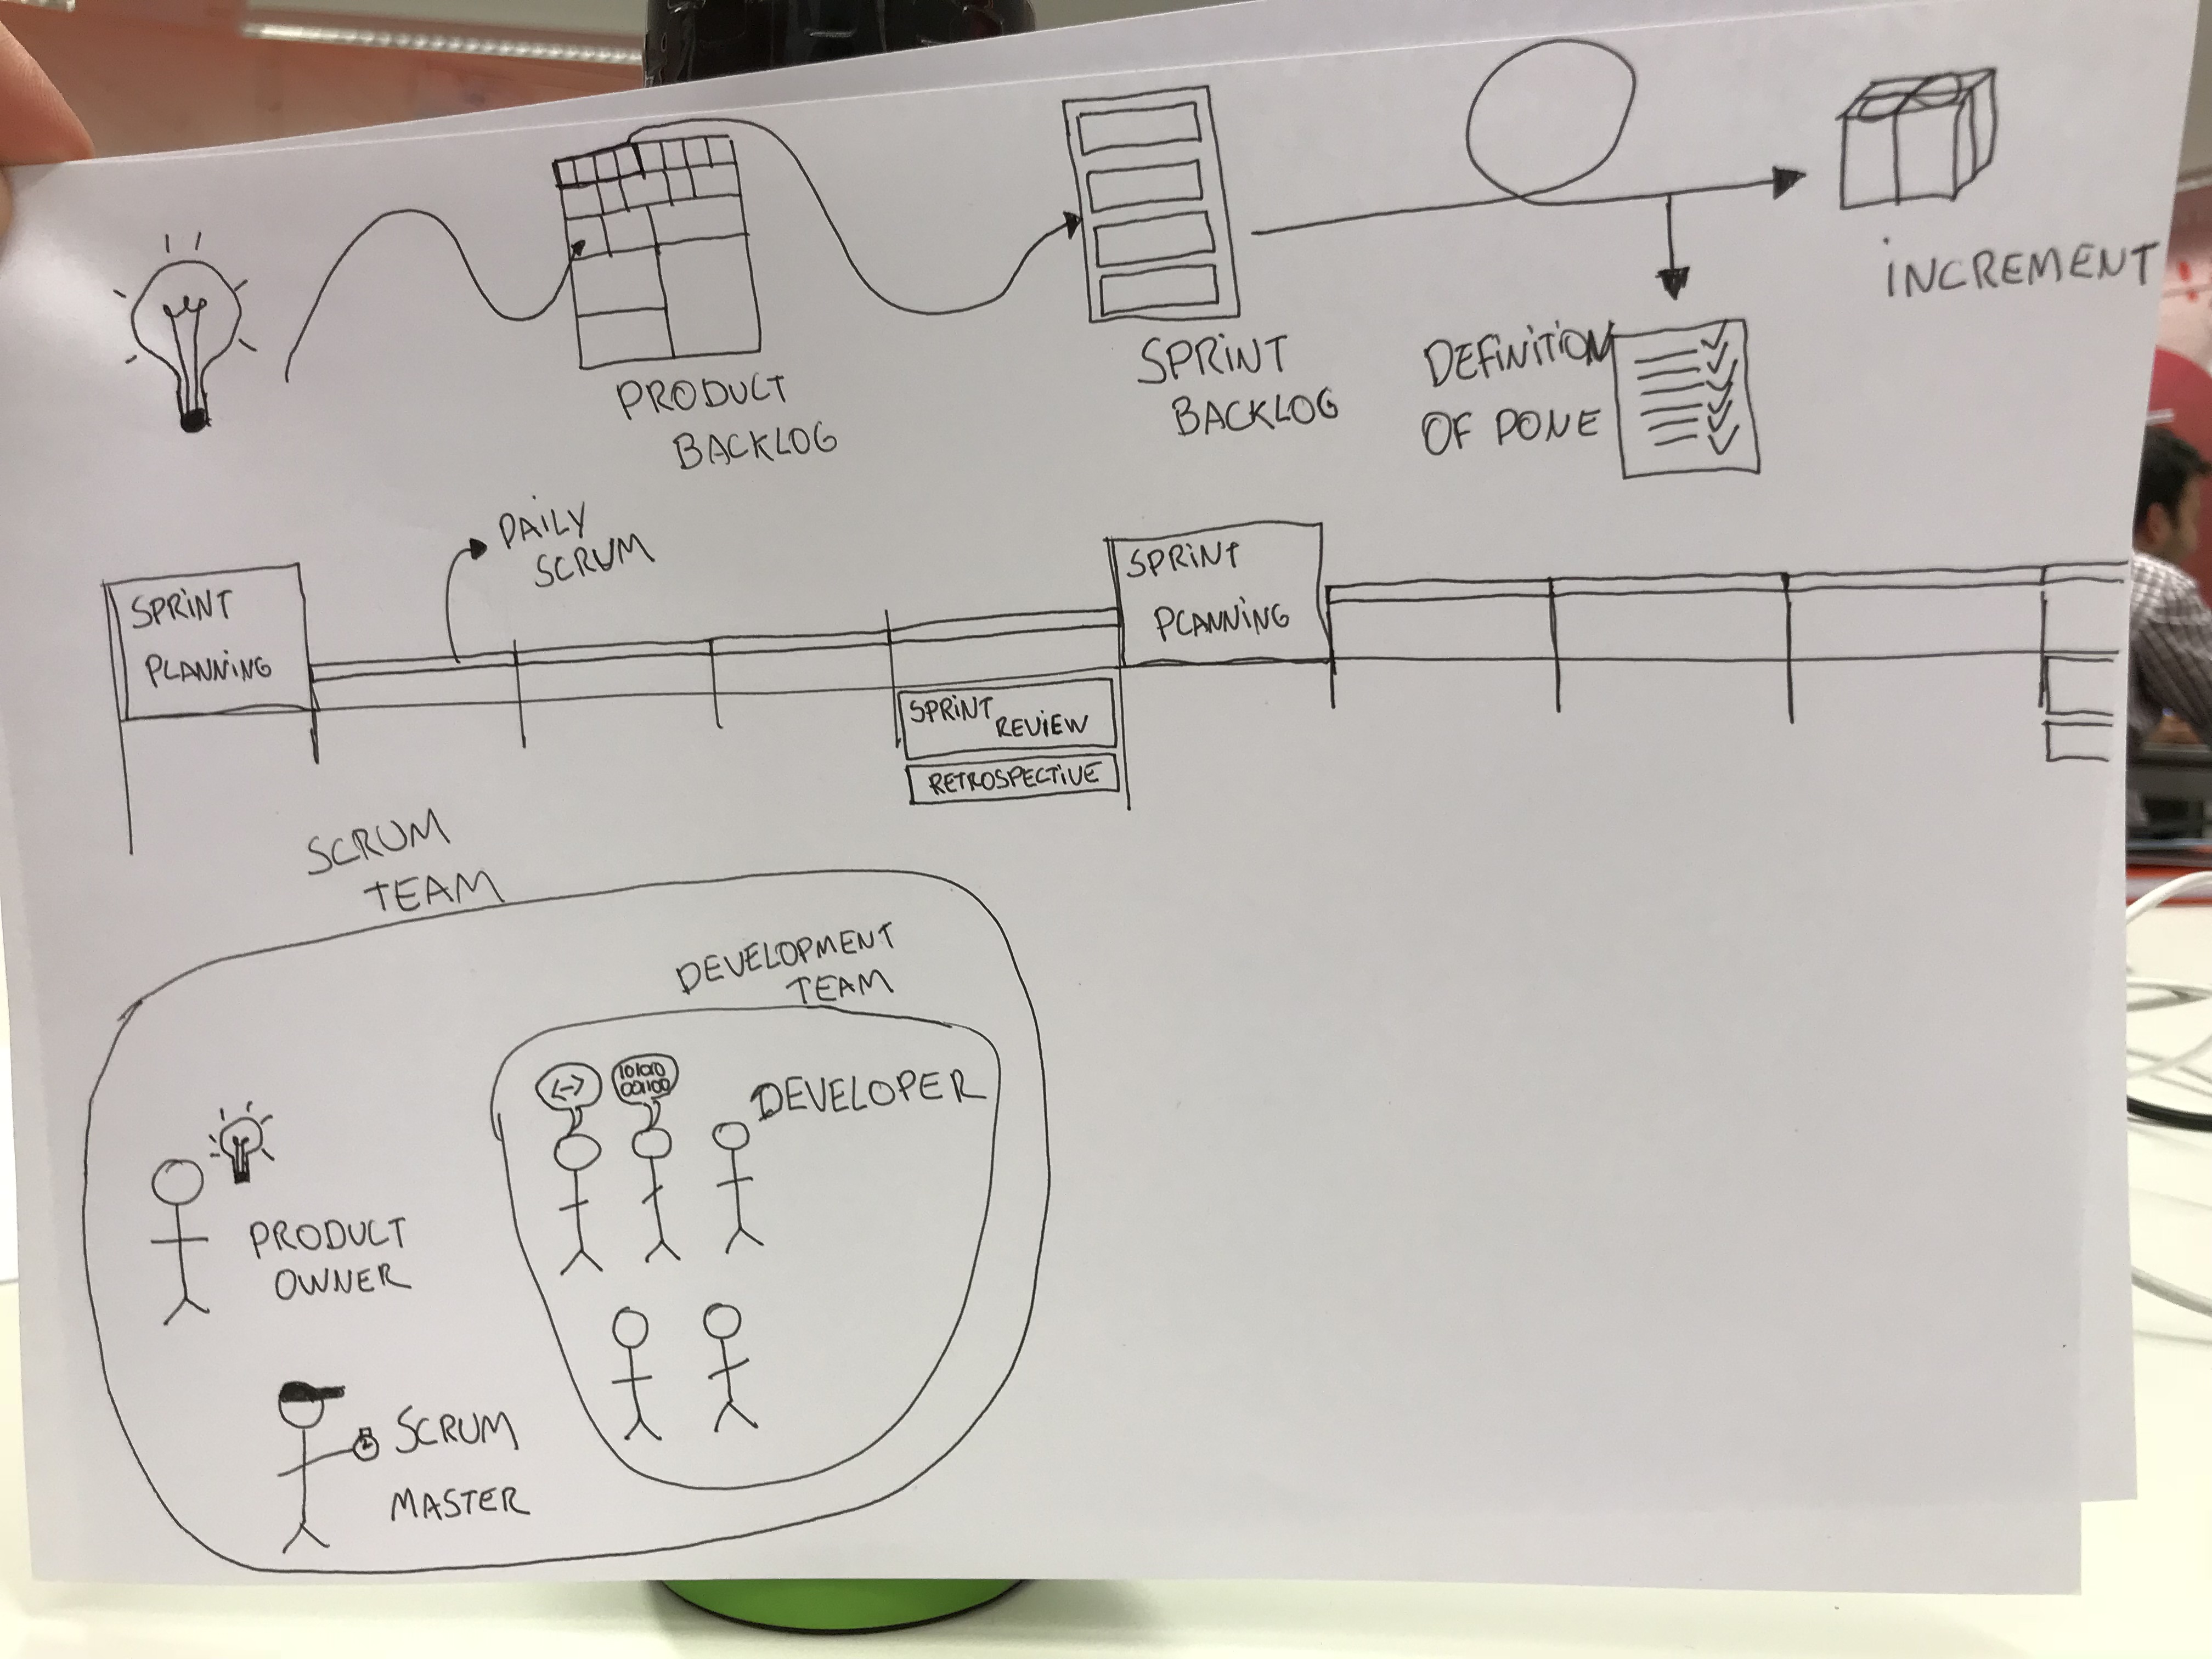 PRODUCT
BACKLOG
SPRINT
BACKLOG
DEFINITION
OF DONE
INCREMENT
SPRINT
PLANNING
DAILY
SCRUM
SPRINT
REVIEW
RETROSPECTIVE
SPRINT
PLANNING
SCRUM
TEAM
DEVELOPMENT
TEAM
<->
10100
00100
DEVELOPER
PRODUCT
OWNER
SCRUM
MASTER